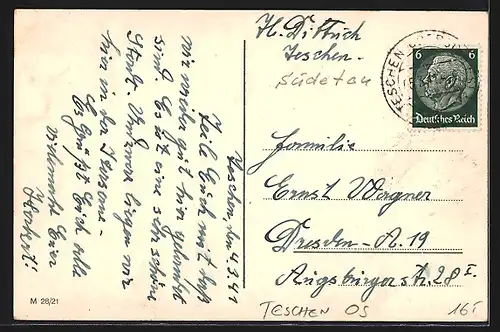 H. Dittrich
Teschen.
Südetau
TESCHEN
6 6
Deutsches Reich
Teschen, den 4.3.41
Teile Euch mit daß
wir wieder gut hier gelandet
sind. Es ist eine sehr schöne
Stadt. liegen wir
hier in der
Es grüßt Euch alle
Euer
Familie
Ernst Wagner
Dresden-A. 19
Augsburgerstr. 28 I.
M 28/21
TESCHEN OS
16,-